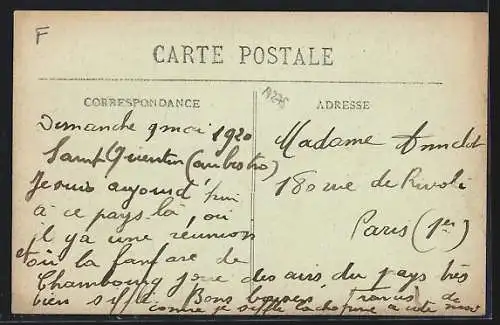 F
CARTE POSTALE
14275
CORRESPONDANCE
ADRESSE
Dimanche 9 mai 1920
Saint Quentin (au bistro)
Je suis aujourd'hui
à ce pays là, où
il y a une réunion
et où la fanfare de
Chambourg joue des airs du pays très
bien sifflé Bons baisers
comme je siffle à côté de moi
Madame
180 rue de Rivoli
Paris (1er)